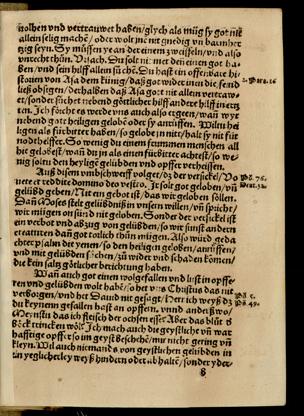 nothen vnd vertrauwet haben/glych als müg sy got nit
allein selig machẽ/ oder wolt mẽ nit gnedig vñ barmher
tzig seyn. Sy müssen ye an der einem zweifeln/vnd also
vnrecht thün. Vrsach. Du solt nit met den einen got ha-
ben/vnd sein hilff allein sůchẽ. Du hast ein offenbare hi- 2. Para. 16
storien von Asa dem künig/das got wider inen die feind
ließ obligen/derhalben das Asa got nit allein vertraw-
et/sonder sůchet nebend göttlicher hilff andere hilff in ertz
ten. Ich förcht es werde vns auch also ergeen/wañ wyr
nebend got heiligen gelobẽ oder sy anrüffen. Wiltu hei
ligen als fürbitter haben/so gelobe jn nitt/halt sy nit für
nodthelffer. So wenig du einem frummen menschen all
hie gelobest/wan du jn als einen fürbitter achtest/so we-
nig soltu den heyligẽ gelübden vnd opffer verheissen.
Auß disem vmbschweiff volget/dz der versickel/ Vo Ps. 75.
uete et reddite domino deo vestro. Ir solt got geloben/vñ Deut. 32.
gelübd geben/Nit ein gebot ist/das wir geloben söllen.
Dañ Moses stelt gelübdnüß in vnsern willen/vñ spricht/
wir mügen on sünd nit geloben. Sonder der versickel ist
ein verbot vnd abzug von gelübden/so wir sunst andern
creaturen dan got totlich thün mügen. Also würd geda
chter psalm den yenen/so den heiligen geloben/anrüffen/
vnd mit gelübden sůchen/zů wider vnd schaden kömen/
die kein salig göttlicher berichtung haben.
Wan auch got einen wolgefallen vnd lust in opffe-
ren vnd gelübden wolt habẽ/so her vns Christus dz nit
verborgen/vnd het Dauid nit gesagt/Herr ich weyß dz Ps. 5.
du keynem gefallen hast an opffern, vnnd anderßwo/ Ps. 49.
Meynstu das ich fleisch der ochsen esse? Aber das blůt d
böck trincken wöl? Ich mach auch die geystliche vñ war
hafftige opffer so im gesetz beschehẽ/mir nicht gering vñ
kleyn. Wil auch niemands von geystlichen gelübden in
ein yeglicherley weyß hindern oder abhaltẽ/sonder yder-
B